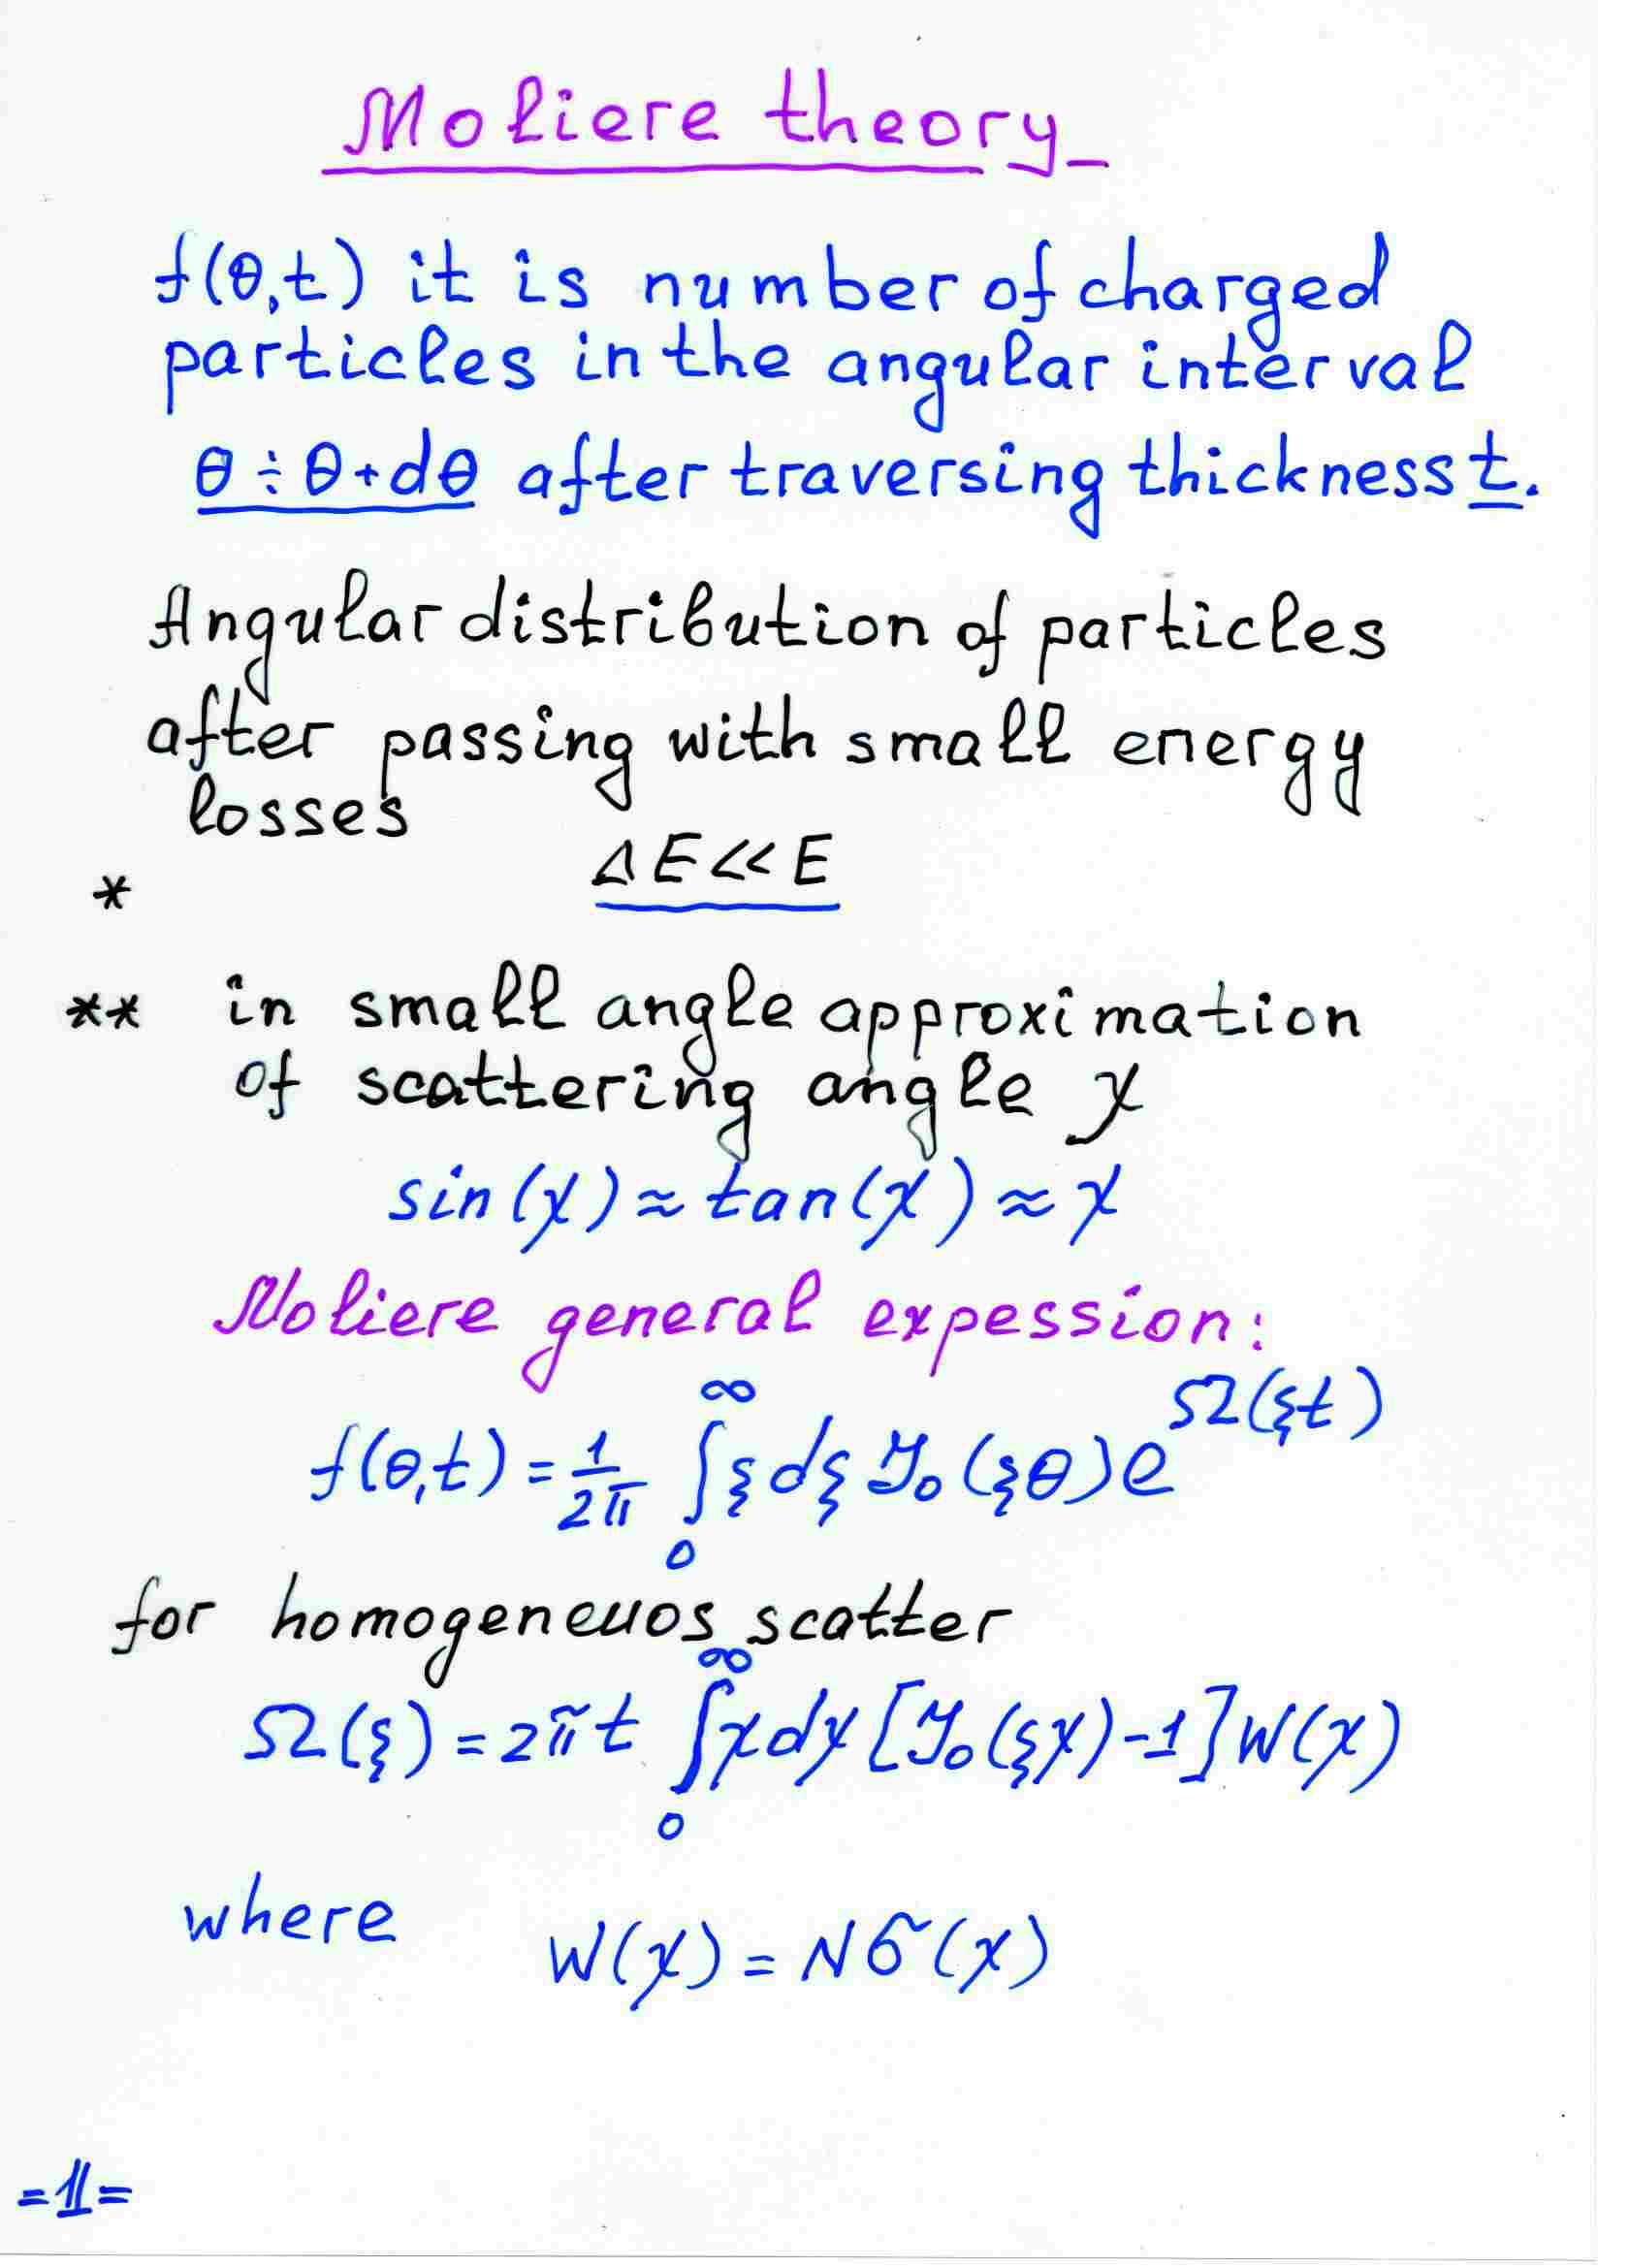 Moliere theory
f(θ,t) it is number of charged
particles in the angular interval
θ ÷ θ + dθ after traversing thickness t.
Angular distribution of particles
after passing with small energy
losses
* ΔE << E
** in small angle approximation
of scattering angle χ
sin(χ) ≈ tan(χ) ≈ χ
Moliere general expession:
f(θ,t) = 1/2π ∫₀^∞ ξ dξ J₀(ξθ) e^Ω(ξt)
for homogeneuos scatter
Ω(ξ) = 2πt ∫₀^∞ χ dχ [J₀(ξχ) - 1] W(χ)
where W(χ) = Nσ(χ)
=1=